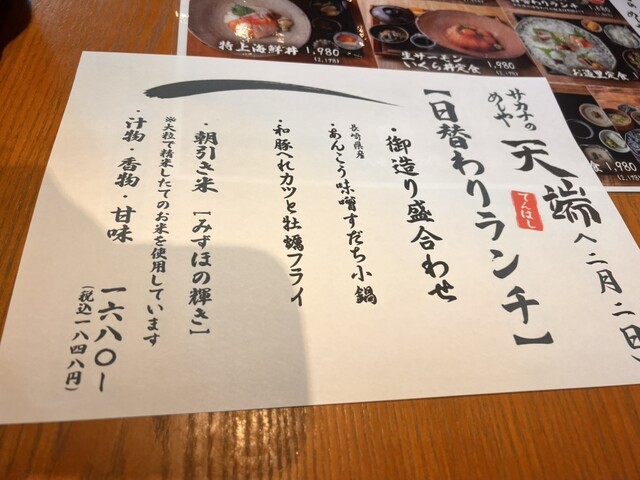 サカナの
めしや
天端
てんはし
〈二月二日〉
【日替わりランチ】
・御造り盛合わせ
長崎県産
・あんこう味噌すだち小鍋
・和豚へれカツと牡蠣フライ
・朝引き米 [みずほの輝き]
※大粒で精米したてのお米を使用しています
・汁物・香物・甘味
一六八〇ー
(税込一八四八円)
特上海鮮丼 1,980
(2,178)
生サーモン
いくら丼定食 1,980
(2,178)
お造里定食